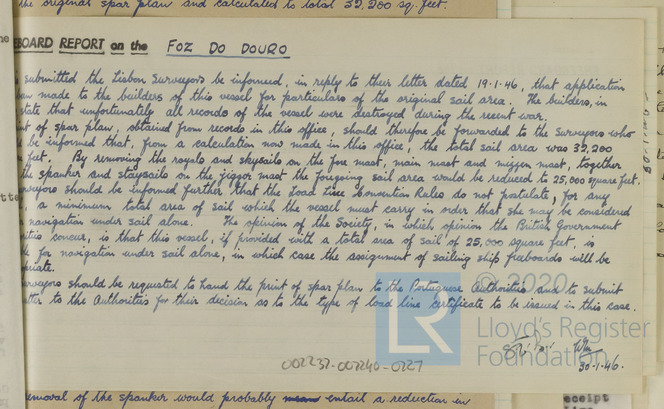 the original spar plan and calculated to total 32,200 sq. feet.
BOARD REPORT on the FOZ DO DOURO
submitted the Lisbon Surveyors be informed, in reply to their letter dated 19·1·46, that application
been made to the builders of this vessel for particulars of the original sail area. The builders, in
state that unfortunately all records of the vessel were destroyed during the recent war.
nt of spar plan, obtained from records in this office, should therefore be forwarded to the Surveyors who
d be informed that, from a calculation now made in this office, the total sail area was 32,200
feet. By removing the royals and skysails on the fore mast, main mast and mizzen mast, together
the spanker and staysails on the jigger mast the foregoing sail area would be reduced to 25,000 square feet.
rveyors should be informed further that the Load Line Convention Rules do not postulate, for any
, a minimum total area of sail which the vessel must carry in order that she may be considered
navigation under sail alone. The opinion of the Society, in which opinion the British Government
ities concur, is that this vessel, if provided with a total area of sail of 25,000 square feet, is
for navigation under sail alone, in which case the assignment of sailing ship freeboards will be
priate.
urveyors should be requested to hand the print of spar plan to the Portuguese Authorities and to submit
atter to the Authorities for their decision as to the type of load line certificate to be issued in this case.
© 2020
LR
Lloyd's Register
Foundation
30·1·46.
002232-002240-0227
emoval of the spanker would probably entail a reduction in
eceipt